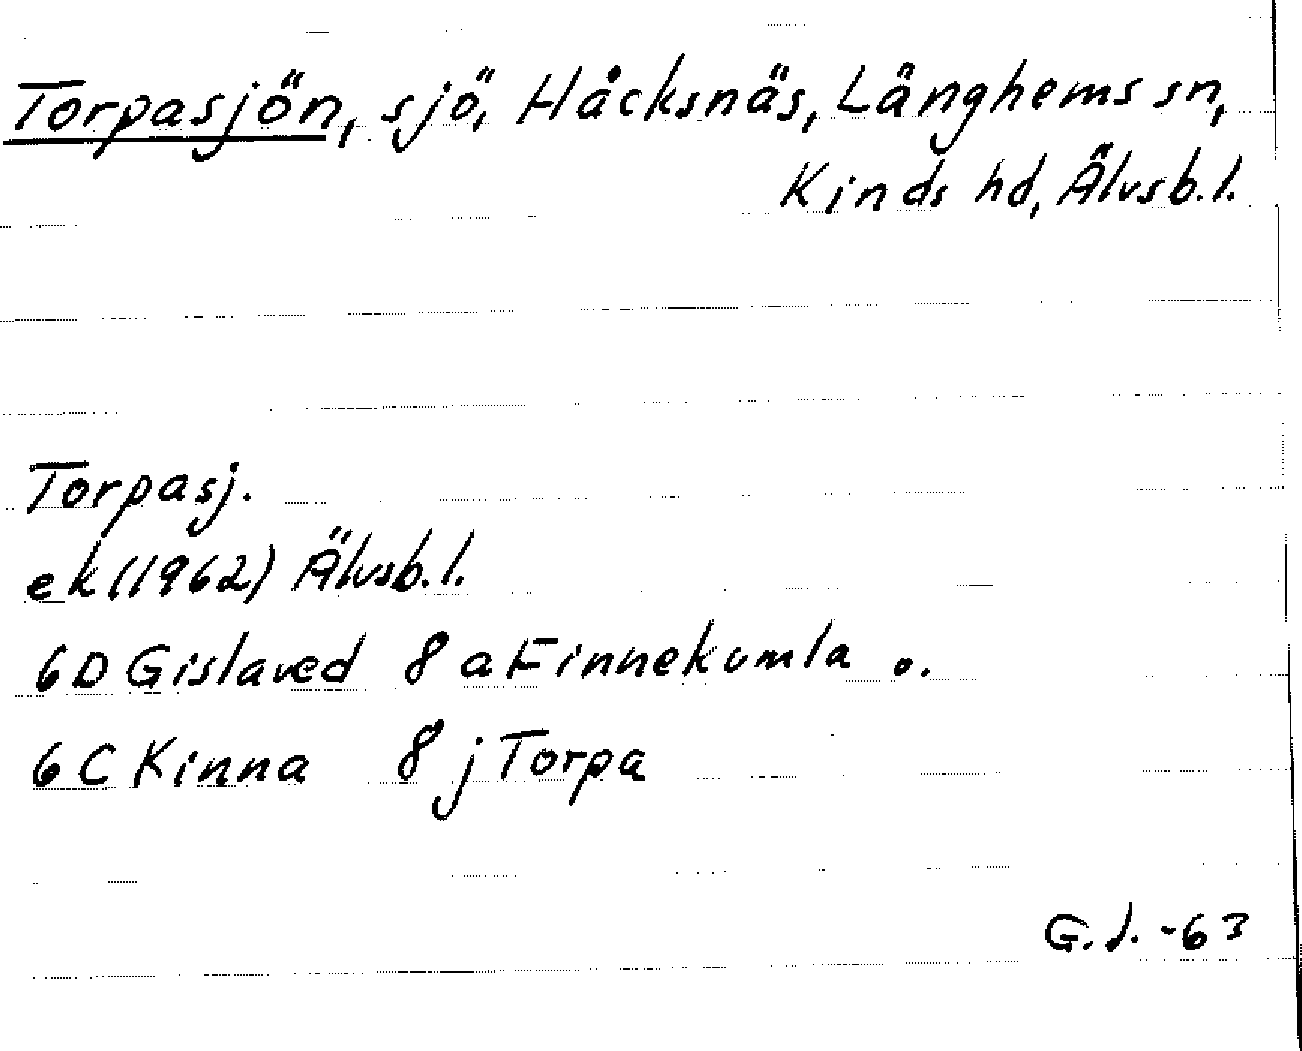 Torpasjön, sjö, Håcksnäs, Länghems sn,
Kinds hd, Älvsb.l.
Torpasj.
ek (1962) Älvsb.l.
6D Gislaved 8 a Finnekumla o.
6C Kinna 8 j Torpa
G.J. -63